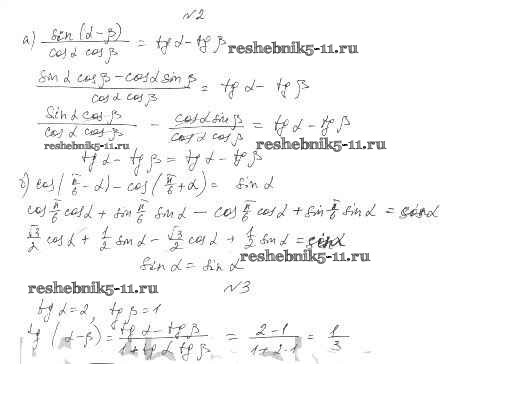 №2
а) sin(α-β)/cosα cosβ = tgα - tgβ reshebnik5-11.ru
sinα cosβ - cosα sinβ/cosα cosβ = tgα - tgβ
sinα cosβ/cosα cosβ - cosα sinβ/cosα cosβ = tgα - tgβ
reshebnik5-11.ru reshebnik5-11.ru
tgα - tgβ = tgα - tgβ
б) cos(π/6 - α) - cos(π/6 + α) = sinα
cos π/6 cosα + sin π/6 sinα - cos π/6 cosα + sin π/6 sinα = sinα
√3/2 cosα + 1/2 sinα - √3/2 cosα + 1/2 sinα = sinα
sinα = sinα reshebnik5-11.ru
reshebnik5-11.ru №3
tgα = 2, tgβ = 1
tg(α-β) = tgα - tgβ/1 + tgα tgβ = 2-1/1+2·1 = 1/3